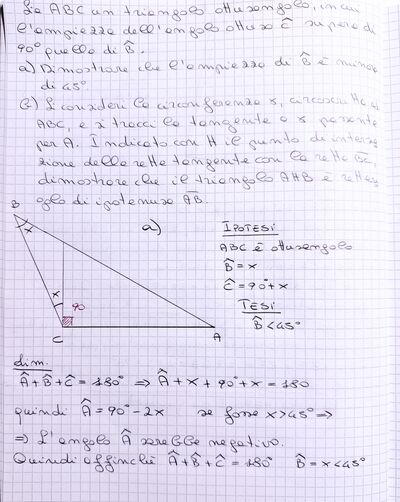 Sia ABC un triangolo ottusangolo, in cui
l'ampiezza dell'angolo ottuso Ĉ supera di
90° quella di B̂.
a) Dimostrare che l'ampiezza di B̂ è minore
di 45°
b) Consideri la circonferenza γ, circoscritta ad
ABC, e si tracci la tangente a γ passante
per A. Indicato con H il punto di interse
zione della retta tangente con la retta BC,
dimostrare che il triangolo AHB è rettan
golo di ipotenusa AB.
B
x
a)
IPOTESI
ABC è ottusangolo
B̂ = x
Ĉ = 90° + x
TESI
B̂ < 45°
x
90
C
A
dim.
Â + B̂ + Ĉ = 180° ⇒ Â + x + 90° + x = 180
quindi Â = 90° - 2x se fosse x > 45° ⇒
⇒ L'angolo Â sarebbe negativo.
Quindi affinché Â + B̂ + Ĉ = 180° B̂ = x < 45°